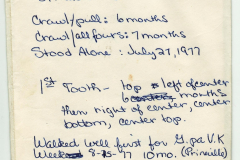 Crawl/pull: 6 months
Crawl/all fours: 7 months
Stood Alone: July 27, 1977
1st Tooth - top left of center
6 months
then right of center, center
bottom, center top.
Walked well first for G.pa V.K
8-25-77 10mo (Prineville)